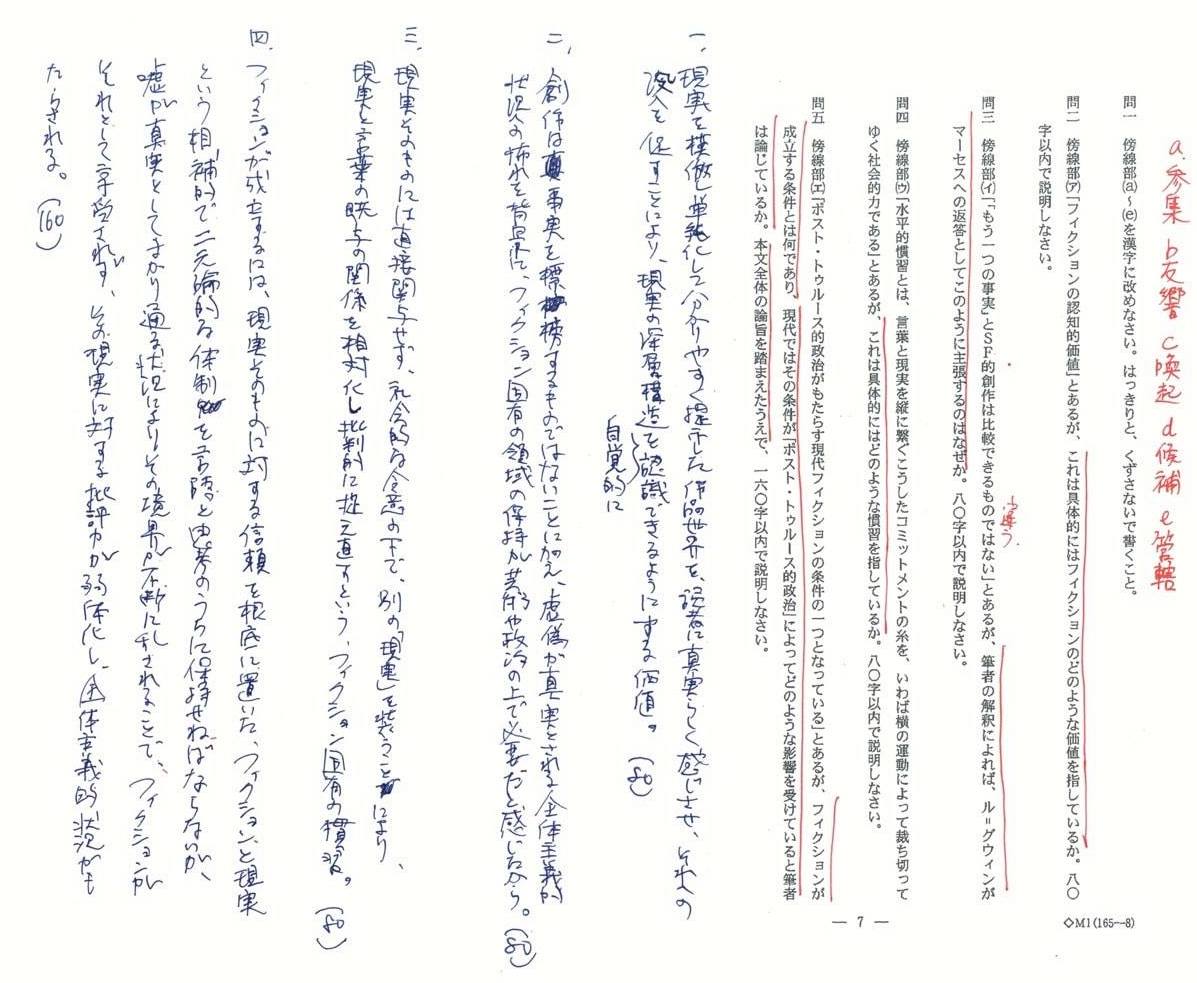 a.参集 b反響 c喚起 d候補 e管轄
問一　傍線部ⓐ～ⓔを漢字に改めなさい。はっきりと、くずさないで書くこと。
問二　傍線部㋐「フィクションの認知的価値」とあるが、これは具体的にはフィクションのどのような価値を指しているか。八〇
字以内で説明しなさい。
問三　傍線部㋑「「もう一つの事実」とSF的創作は比較できるものではない」とあるが、筆者の解釈によれば、ル＝グウィンが
マーセスへの返答としてこのように主張するのはなぜか。八〇字以内で説明しなさい。
問四　傍線部㋒「水平的慣習とは、言葉と現実を縦に繋ぐこうしたコミットメントの糸を、いわば横の運動によって裁ち切って
ゆく社会的力である」とあるが、これは具体的にはどのような慣習を指しているか。八〇字以内で説明しなさい。
問五　傍線部㋓「ポスト・トゥルース的政治がもたらす現代フィクションの条件の一つとなっている」とあるが、フィクションが
成立する条件とは何であり、現代ではその条件が「ポスト・トゥルース的政治」によってどのような影響を受けていると筆者
は論じているか。本文全体の論旨を踏まえたうえで、一六〇字以内で説明しなさい。
— 7 —
◇M1(165—8)
一、現実を模倣し単純化して分かりやすく提示した作品世界を、読者に真実らしく感じさせ、それへの
没入を促すことにより、現実の深層構造を認識できるようにする価値。(80)
自覚的に
二、創作は事実を標榜するものではないことに加え、虚偽が真実とされる全体主義的
状況への怖れを背景に、フィクション固有の領域の保持が芸術や政治の上で必要だと感じたから。(80)
三、現実そのものには直接関与せず、社会的な合意の下で、別の「現実」を装うことにより、
現実と言葉の関係を相対化し批判的に捉え直すという、フィクション固有の慣習。(80)
四、フィクションが成立するには、現実そのものに対する信頼を根底に置いた、フィクションと現実
という相補的で二元論的な体制を言語と思考のうちに保持せねばならないが、
嘘が真実としてまかり通る状況によりその境界が不断に乱されることで、フィクションが
それとして享受されず、その現実に対する批評力が弱体化し、全体主義的状況がも
たらされる。(160)